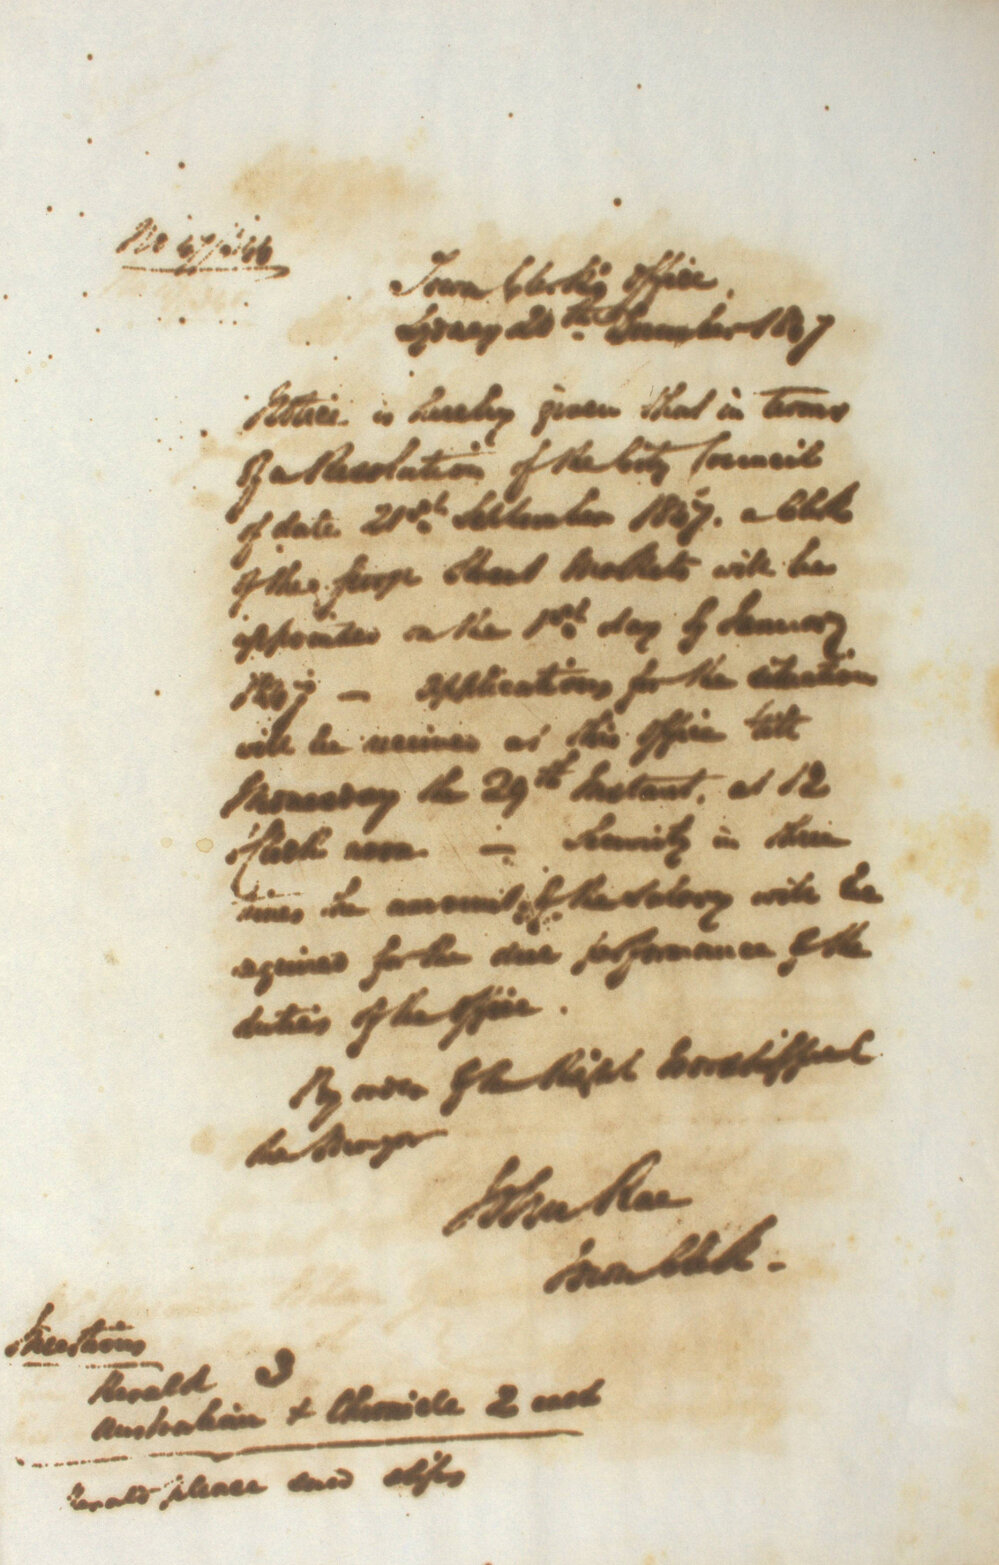 No 47/266
Town Clerk's Office,
Sydney 20th December 1847
Notice is hereby given that in terms
of a Resolution of the City Council
of date 21st September 1847. a Clerk
of the George Street Markets will be
appointed on the 1st day of January
applications for the situation
will be received at this Office till
the 29th Instant, at 12
o'Clock noon — Security in three
times the amount of the salary will be
required for the due performance of the
duties of the Office.
By order of the Right Worshipful
the Mayor
John Rae
Town Clerk.
Insertions
Herald 3
Australian & Chronicle 2 each
Herald please send slips